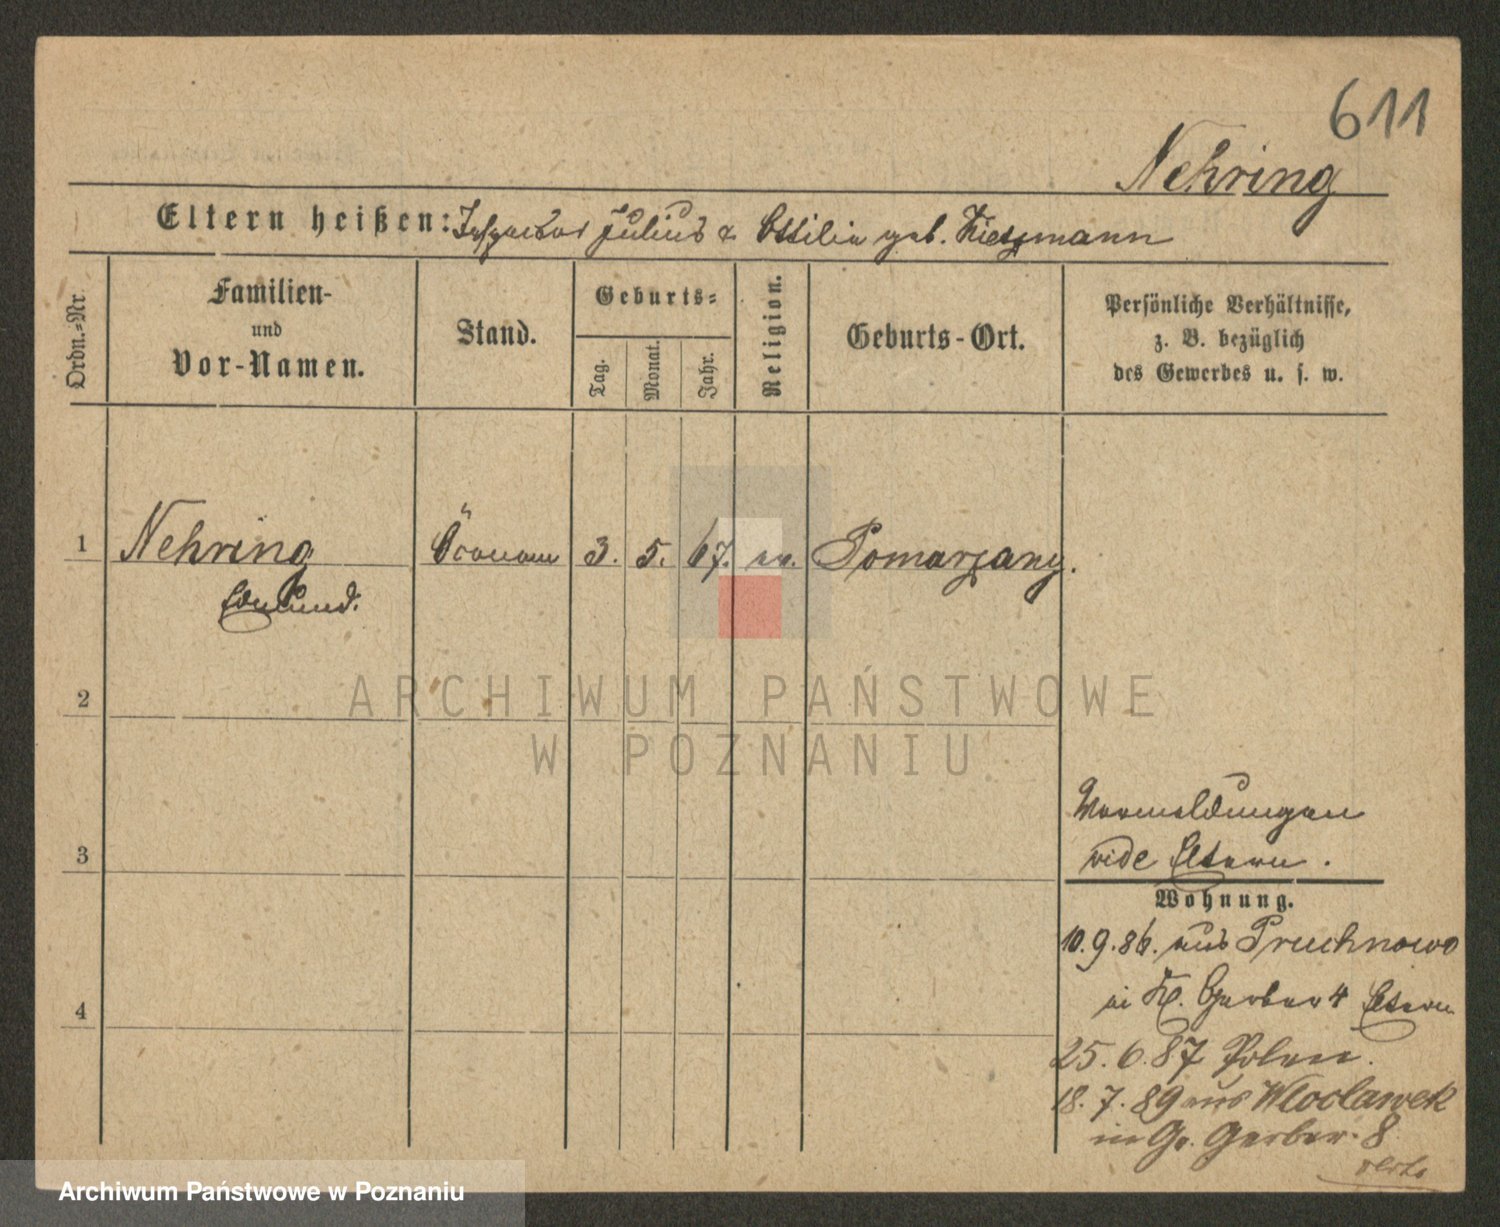 611
Nehring
Eltern heißen: Inspector Julius & Ottilie geb. Kietzmann
Ordn.=Nr.
Familien-
und
Vor-Namen.
Stand.
Geburts=
Tag.
Monat.
Jahr.
Religion.
Geburts-Ort.
Persönliche Verhältnisse,
z. B. bezüglich
des Gewerbes u. s. w.
1 Nehring Öconom 3. 5. 67. ev. Pomarzany.
Edmund.
2
ARCHIWUM PAŃSTWOWE
W POZNANIU
Vormeldungen
3
vide Eltern.
Wohnung.
10.9.86. aus Pruchnowo
in Kl. Gerber 4 Eltern
4
25.6.87 Polen.
18.7.89 aus Wloclawek
in Gr. Gerber. 8
verte
Archiwum Państwowe w Poznaniu